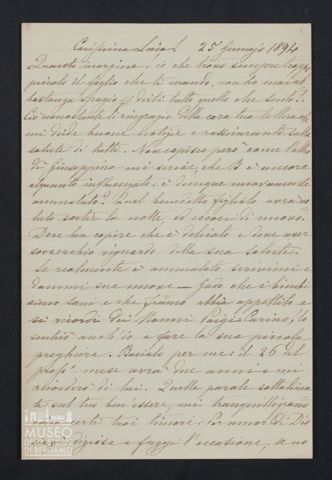 Carissima Luisa! 25 Gennajo 1894
Quanto margine! io che trovo sempre troppo
piccolo il foglio che ti mando, non ho mai ab
bastanza spazio per dirti tutto quello che sento!
Ciò non ti ringrazio della cara tua lettera che
mi diede buone notizie e rassicuranti sulla
salute di tutti. Non capisco però come l'altra
di Giuseppina mi scrive, che B è ancora
alquanto : è dunque nuovamente
ammalato? Quel benedetto figliolo avrà vo
luto sortir la notte, ed eccoci di nuovo.
Deve ben capire che è delicato e deve aver
soverchio riguardo della sua salute.
Se realmente è ammalato scrivimi e
dammi sue nuove — Godo che i bimbi
sieno sani e che Franco abbia appetito e
si ricordi dei Nonni Luigi Parino, lo
sentirò anch'io a fare la sua piccola
preghiera. Bacialo per me: il 26 del
pross° mese avrà due anni e mi
ricorderò di lui. Quelle parole sottolineate
sul tuo ben'essere, mi tranquillizzano
certi tuoi timori. Per amor di Dio
e fuggi l'occasione, se no
MUSEO
DI BERGAMO